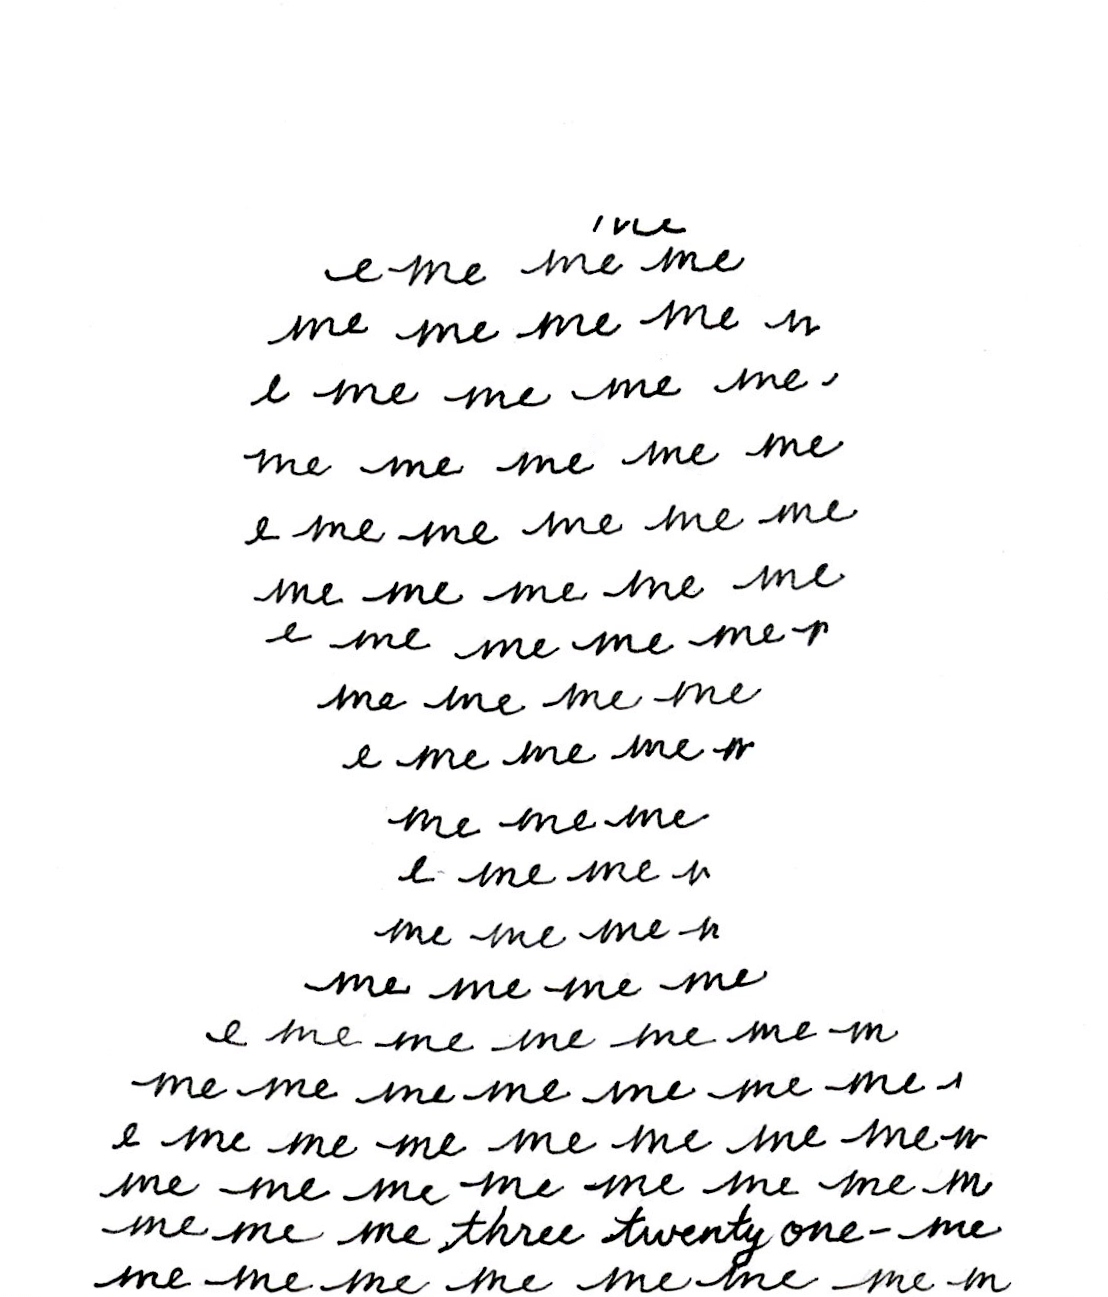 me
e me me me
me me me me n
e me me me me
me me me me me
e me me me me me
me me me me me
e me me me me r
me me me me
e me me me n
me me me
e me me n
me me me n
me me me me
e me me me me me m
me me me me me me me
e me me me me me me me n
me me me me me me me m
me me me three twenty one- me
me me me me me me me m